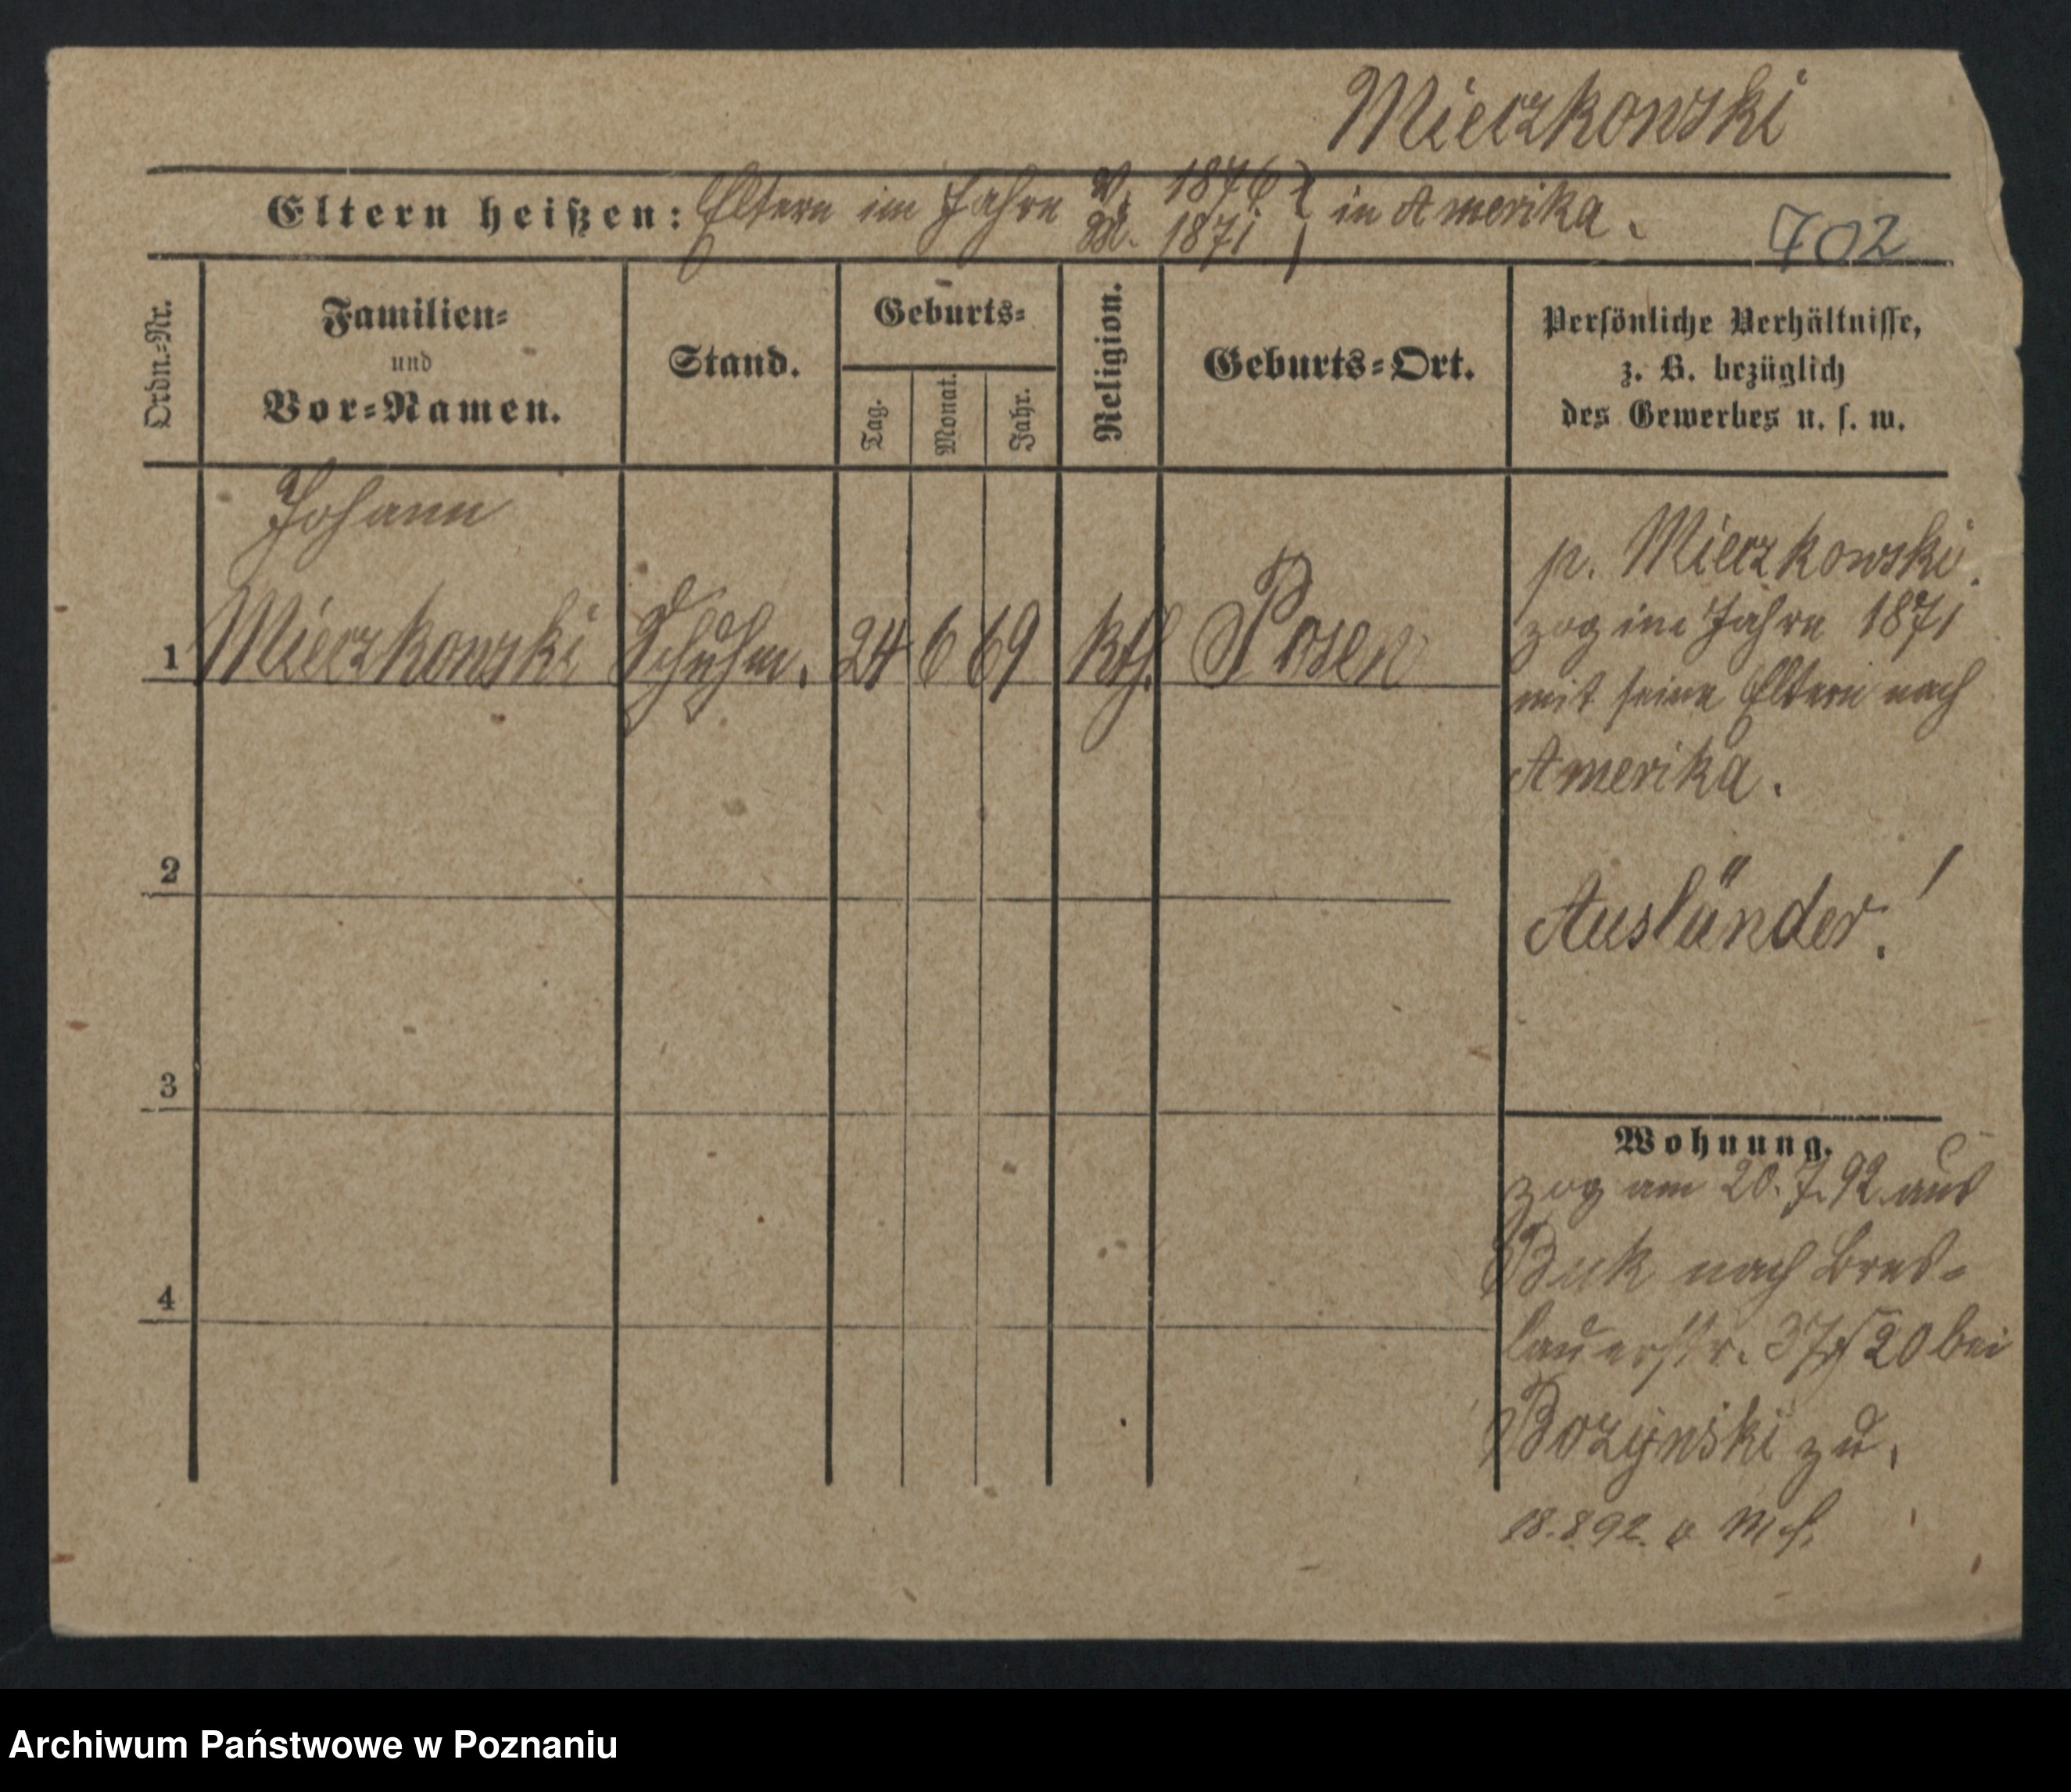 Mieczkowski
Eltern heißen: Eltern im Jahre V. 1876 } in Amerika.
M. 1871
702
Ordn.=Nr.
Familien=
und
Vor=Namen.
Stand.
Geburts=
Tag.
Monat.
Jahr.
Religion.
Geburts=Ort.
Persönliche Verhältnisse,
z. B. bezüglich
des Gewerbes u. s. w.
Johann
1 Mieczkowski Schuhm. 24 6 69 kth. Posen
p. Mieczkowski.
zog im Jahre 1871
mit seine Eltern nach
Amerika.
Ausländer!
2
3
4
Wohnung.
zog am 20.7.92. aus
Buk nach Bres=
lauerstr. 37/20 bei
Bozynski zu.
18.8.92.
Archiwum Państwowe w Poznaniu